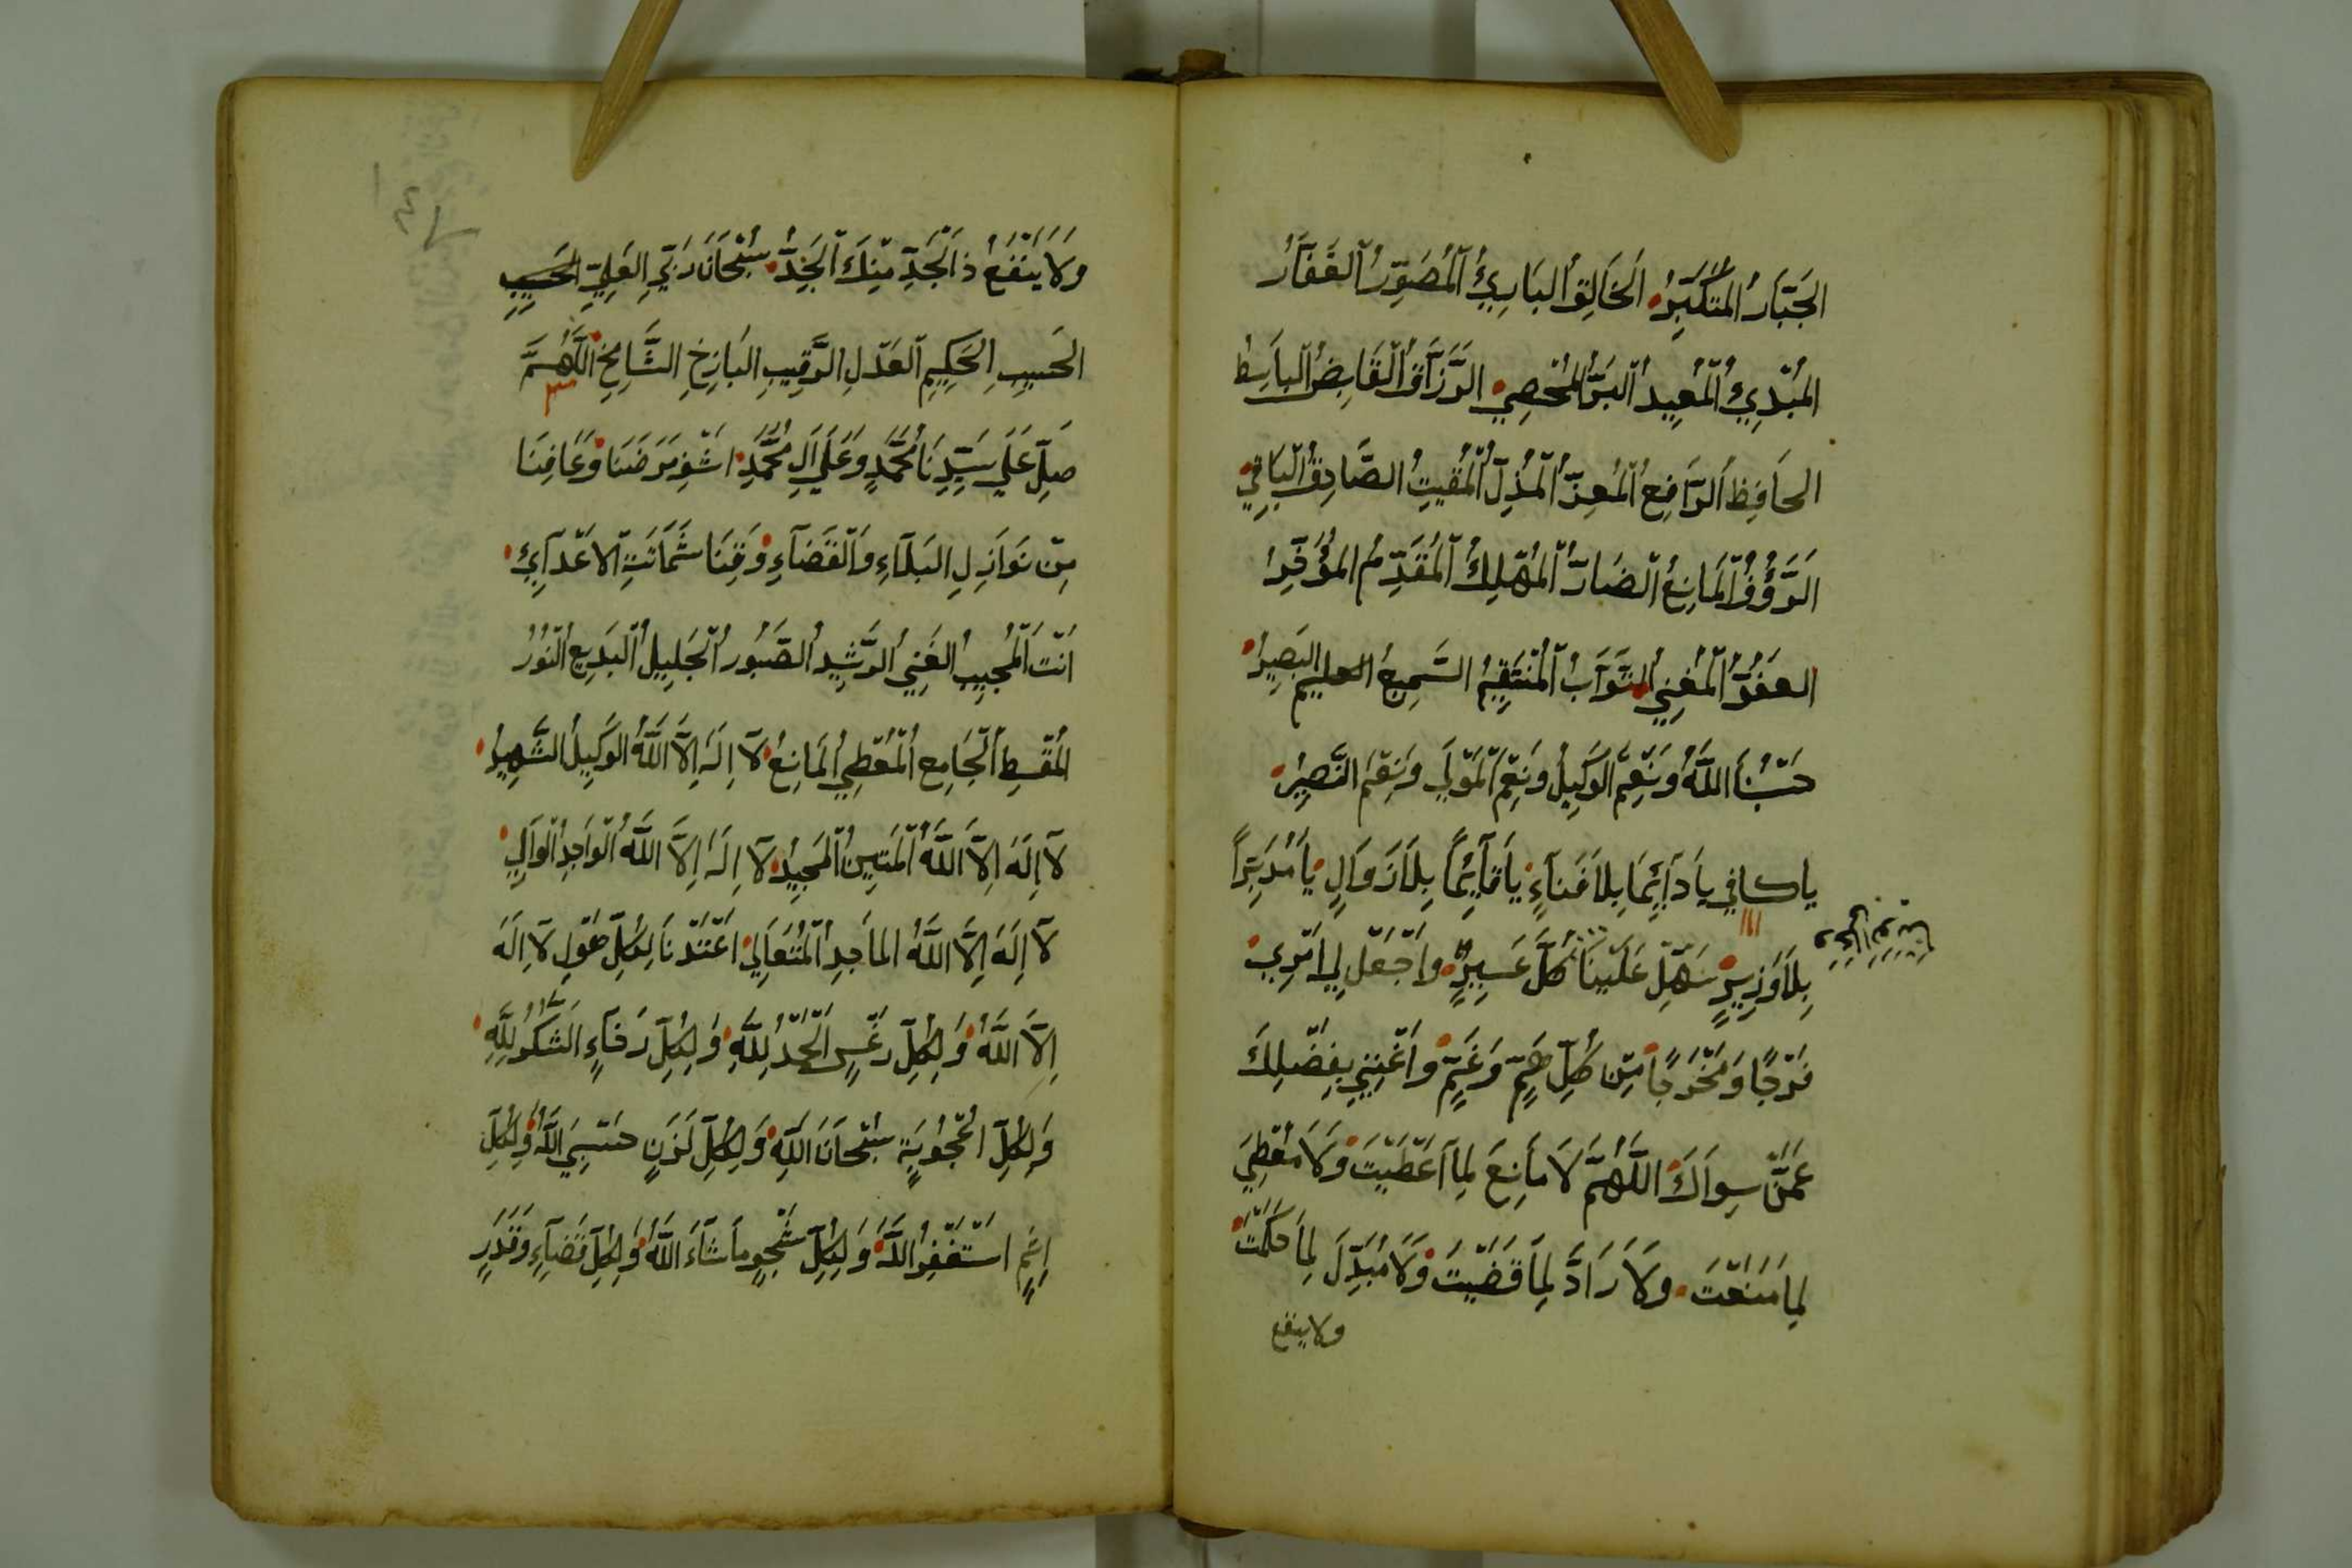 الجَبَّارُ المُتَكَبِّرُ الخَالِقُ البَارِئُ المُصَوِّرُ الغَفَّارُ
المُبْدِيُ المُعِيدُ البَرُّ المُحْصِي الرَّزَّاقُ القَابِضُ البَاسِطُ
الحَافِظُ الرَّافِعُ المُعِزُّ المُذِلُّ المُقِيتُ الصَّادِقُ البَاقِي
الرَّؤُفُ المَانِعُ الضَّارُّ المُهْلِكُ المُقَدِّمُ المُؤَخِّرُ
العَفُوُّ المُغْنِي التَّوَّابُ المُنْتَقِمُ السَّمِيعُ العليم البَصِيرُ
حَسْبُنَا اللَّهُ وَنِعْمَ الوَكِيلُ وَنِعْمَ المَوْلَى وَنِعْمَ النَّصِيرُ
ياكافي يَا دَآئِمًا بِلَا فَنَآءٍ يَا قَآئِمًا بِلَا زَوَالٍ يَا مُدَبِّرًا
بِلَا وَزِيرٍ سَهِّلْ عَلَيْنَا كُلَّ عَسِيرٍ وَاجْعَلْ لِي امْرِي
فَرَجًا وَمَخْرَجًا مِنْ كُلِّ هَمٍّ وَغَمٍّ وَاغْنِنِي بِفَضْلِكَ
عَمَّنْ سِوَاكَ اللَّهُمَّ لَا مَانِعَ لِمَا اَعْطَيْتَ وَلَا مُعْطِيَ
لِمَا مَنَعْتَ وَلَا رَادَّ لِمَا قَضَيْتَ وَلَا مُبَدِّلَ لِمَا حَكَمْتَ
ولا ينفع
وَلَا يَنْفَعُ ذَا الجَدِّ مِنْكَ الجَدُّ سُبْحَانَ رَبِّيَ العَلِيِّ
الحَسِيبِ الحَكِيمِ العَدْلِ الرَّقِيبِ البَازِخِ الشَّامِخِ اللَّهُمَّ
صَلِّ عَلَى سَيِّدِنَا مُحَمَّدٍ وَعَلَى اَلِ مُحَمَّدٍ اشْفِ مَرْضَنَا وَعَافِنَا
مِنْ نَوَازِلِ البَلَآءِ وَالقَضَآءِ وَقِنَا شَمَاتَتِ الاَعْدَآئِ
اَنْتَ المُجِيبُ الغَنِيُ الرَّشِيدُ الصَّبُورُ الجَلِيلُ البَدِيعُ النُّورُ
المُقْسِطُ الجَامِعُ المُعْطِي المَانِعُ لَآ اِلَهَ اِلَّا اللَّهُ الوَكِيلُ الشَّهِيدُ
لَآ اِلَهَ اِلَّا اللَّهُ المَتِينُ المَجِيدُ لَآ اِلَهَ اِلَّا اللَّهُ الوَاجِدُ الوَالِي
لَآ اِلَهَ اِلَّا اللَّهُ المَاجِدُ المُتَعَالِي اعْتَدْنَا لِكُلِّ هَوْلٍ لَآ اِلَهَ
اِلَّا اللَّهُ وَلِكُلِّ رَغْسٍ الحَمْدُ لِلَّهِ وَلِكُلِّ رَخَآءٍ الشُّكْرُ لِلَّهِ
وَلِكُلِّ اُعْجُوبَةٍ سُبْحَانَ اللَّهِ وَلِكُلِّ لَزَنٍ حَسْبِيَ اللَّهُ وَلِكُلِّ
اِثْمٍ اسْتَغْفِرُ اللَّهَ وَلِكُلِّ شَجْوٍ مَا شَآءَ اللَّهُ وَلِكُلِّ قَضَآءٍ وَقَدَرٍ